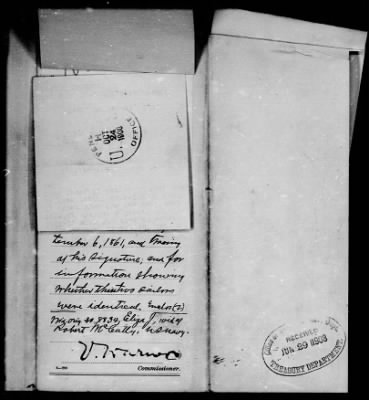 PEN
OCT
24
1900
U.
OFFICE
tember 6, 1861, and tracing
of his signature, and for
information showing
whether the two sailors
were identical. Enclos(2)
Wid. orig. 8834, Eliza J. wid of
Robert McCully, U.S. Navy.
Commissioner.
RECEIVED
JUN 29 1903
TREASURY DEPARTMENT